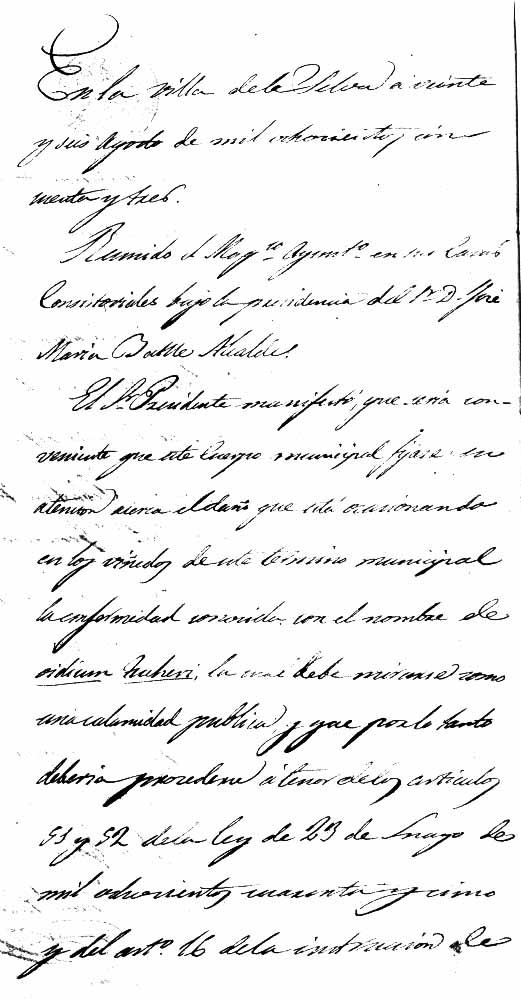 En la villa de la Selva a veinte
y seis Agosto de mil ochocientos cin
cuenta y tres.
Reunido el Magco. Ayuntº en sus Casas
Consistoriales bajo la presidencia del Sr. D. José
Maria Batlle Alcalde.
El Sr. Presidente manifestó, que seria con-
veniente que este Cuerpo municipal fijase su
atencion acerca el daño que está ocasionando
en los viñedos de este término municipal
la enfermedad conocida con el nombre de
oidium Tucheri, la cual debe mirarse como
una calamidad publica, y que por lo tanto
deberia procederse á tenor de los articulos
51 y 52 de la ley de 23 de Mayo de
mil ochocientos cuarenta y cinco
y del artº. 16 de la instruccion de